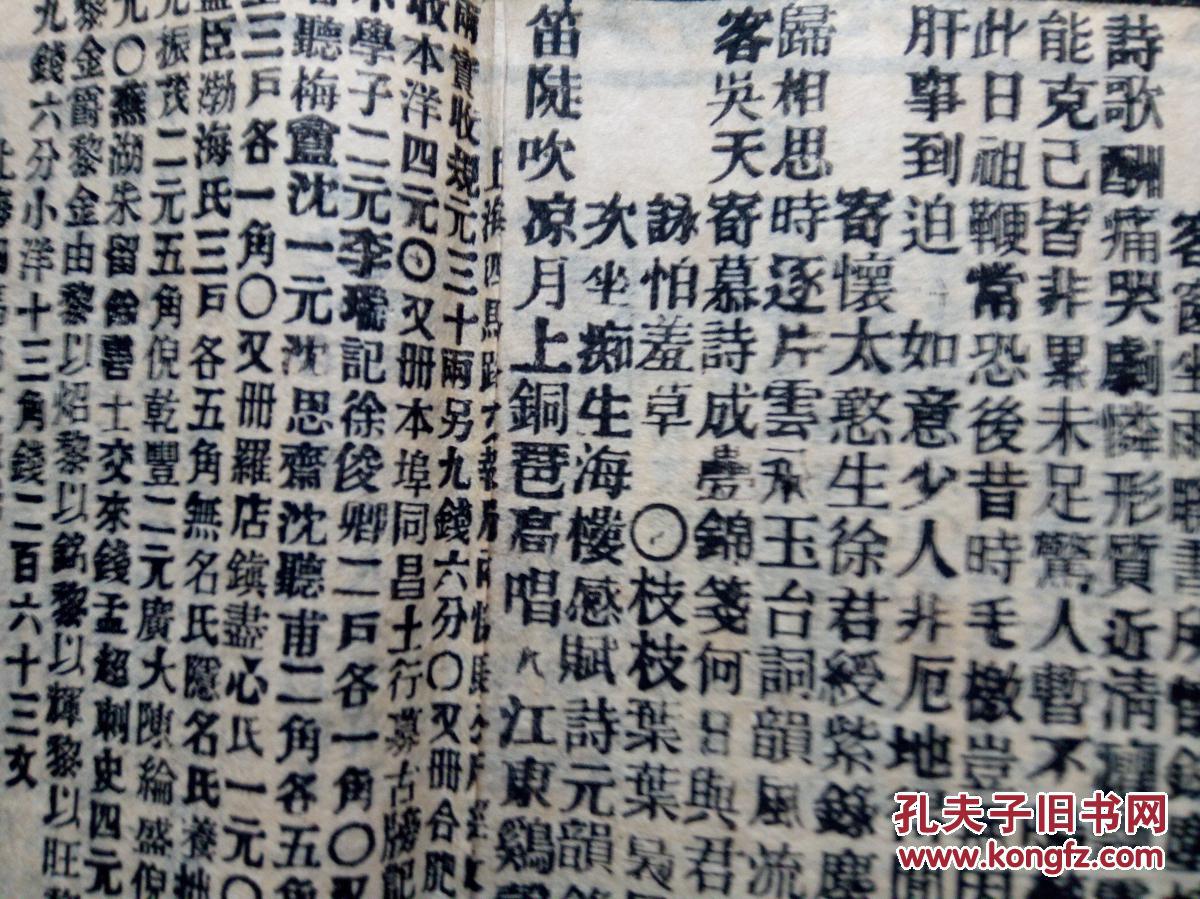 客窗坐雨
詩歌酬痛哭劇憐形質近清
能克己皆非果未足驚人暫不
此日祖鞭常恐後昔時毛檄豈
肝事到迫　如意少人非厄地
寄懷太憨生徐君綬紫籙塵
歸相思時逐片雲飛玉台詞韻風流
客吳天寄慕詩成疊錦箋何日與君
詠怕羞草　〇枝枝葉葉
次坐痴生海樓感賦詩元韻
笛陡吹凉月上銅琶高唱大江東鷄聲
上海四馬路
兩實收規元三十兩另九錢六分〇又册合肥
收本洋四元〇又册本埠同昌土行募古
學子二元李瑞記徐俊卿二戶各一角〇又
聽梅盦沈一元沈思齋沈聽甫二角各五角
三戶各一角〇又册羅店鎭盡心氏一元〇
臣渤海氏三戶各五角無名氏隱名氏養拙
振茂二元五角倪乾豐二元廣大陳綸盛倪
〇蕪湖朱留餘善士交來錢孟超刺史四元
黎金爵黎金由黎以炤黎以銘黎以輝黎以旺黎
九錢六分小洋十三角錢二百六十三文
孔夫子旧书网
www.kongfz.com